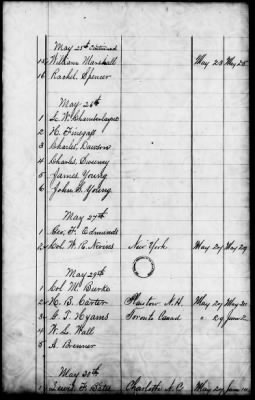 May 25th Continued
15 William Marshall May 23 May 25
16 Rachel Spencer
May 26th
1 L. W. Chamberlayne
2 H. Finegass
3 Charles Dawson
4 Charles Sweeney
5 James Young
6 John B. Young
May 27th
1 Geo. F. Edmunds
2 Col W. R. Nevins New York May 27 May 29
May 29th
1 Col Mc Burke
2 H. B. Carter Plaistow N.H. May 29 May 30
3 C. T. Hyams Toronto Canad " 29 June 2
4 W. L. Wall
5 A. Brenner
May 30th
1 Lewis F. Bates Charlotte N.C. May 29 June